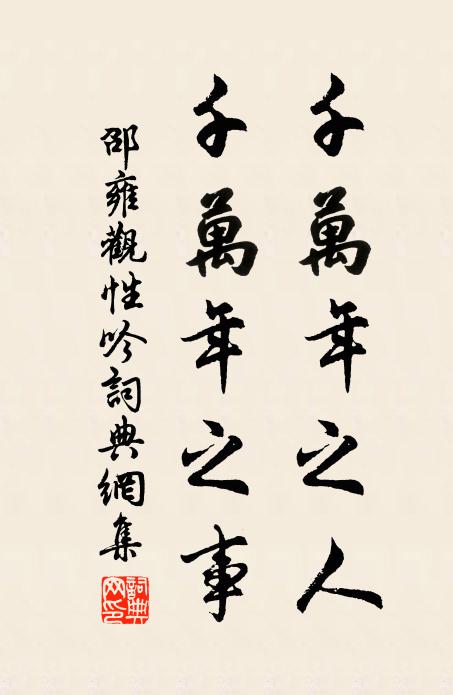 千萬年之人
千萬年之事
邵雍觀性吟詞典網集
詞典网印